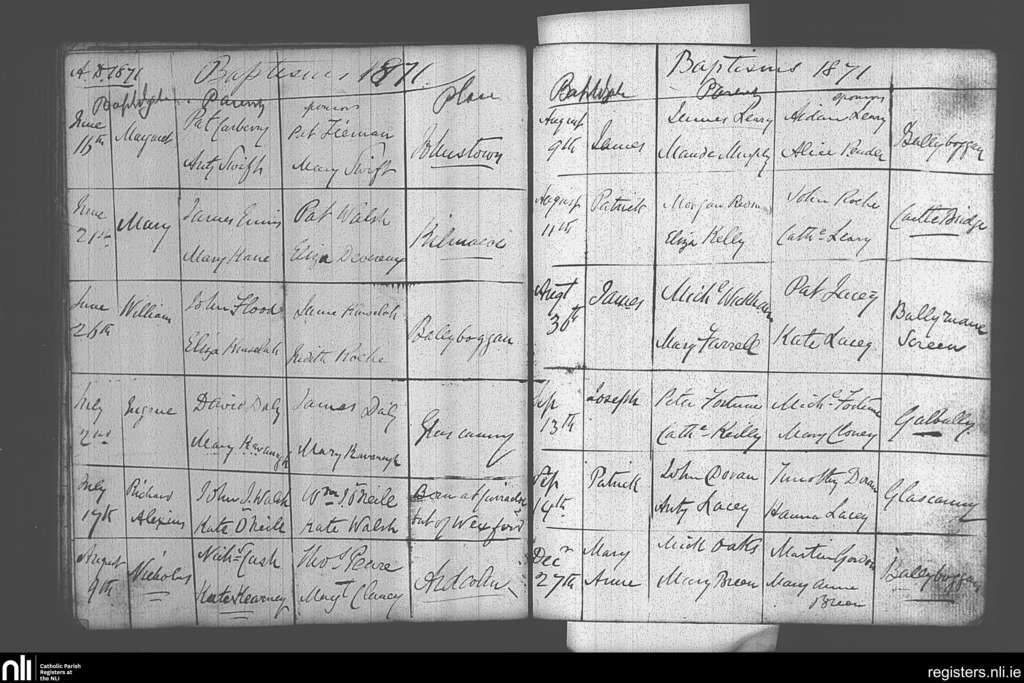 A.D. 1871 Baptisms 1871.
Bapt'd Parents sponsors place
June Pat Carberry Pat
15th Margaret Johnstown
Anty Swift Mary Swift
June James Pat Walsh
21st Mary
Mary Eliza Devereux
June William John Flood
26th Ballyboggan
Eliza Judith Roche
July Eugene David Daly James Daly
2nd Glascarrig
Mary Kavanagh Mary Kavanagh
July Richard John J. Walsh Wm J. O'Neile Born at
17th Alexius Kate O'Neile Kate Walsh but of Wexford
August Nichs Cash Thos Peare
9th Nicholas Ardcolm
Kate Kearney Margt Clancy
Baptisms 1871
Bapt'd Parents sponsors
August James Leary Aidan Leary
9th James Ballyboggan
Maude Murphy Alice
August Patrick Morgan John Roche
11th Castle Bridge
Eliza Kelly Cathe Leary
Augt James Michl Wickham Pat Lacey
30th Ballymane
Mary Farrell Kate Lacey Screen
Sep Joseph Peter Fortune Michl Fortune
13th Galbally
Cathe Reilly Mary Cloney
Sep Patrick John Doran Timothy Doran
14th Glascarrig
Anty Lacey Hanna Lacey
Decr Mary Mick Oaks Martin Gordon
27th Anne Ballyboggan
Mary Breen Mary Anne
Breen
nli
Catholic Parish
Registers at
the NLI
registers.nli.ie